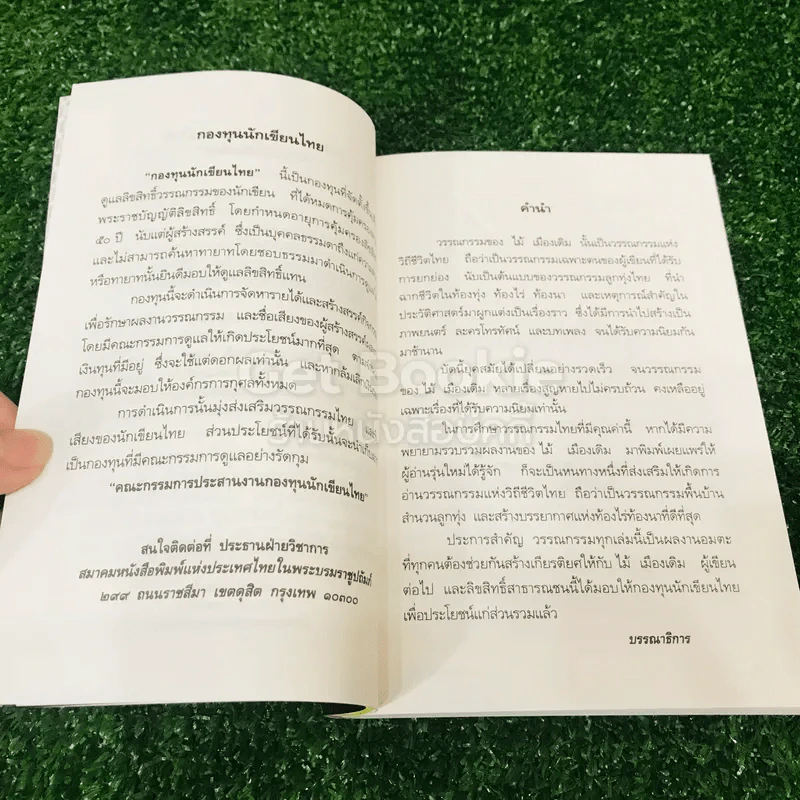 กองทุนนักเขียนไทย
"กองทุนนักเขียนไทย" นี้เป็นกองทุนที่จัดตั้งขึ้น
ดูแลลิขสิทธิ์วรรณกรรมของนักเขียน ที่ได้หมดการคุ้มครอง
พระราชบัญญัติลิขสิทธิ์ โดยกำหนดอายุการคุ้มครอง
๕๐ ปี นับแต่ผู้สร้างสรรค์ ซึ่งเป็นบุคคลธรรมดาถึงแก่ความ
และไม่สามารถค้นหาทายาทโดยชอบธรรมมาดำเนินการดูแล
หรือทายาทนั้นยินดีมอบให้ดูแลลิขสิทธิ์แทน
กองทุนนี้จะดำเนินการจัดหารายได้และสร้างสรรค์
เพื่อรักษาผลงานวรรณกรรม และชื่อเสียงของผู้สร้างสรรค์
โดยมีคณะกรรมการดูแลให้เกิดประโยชน์มากที่สุด ตาม
เงินทุนที่มีอยู่ ซึ่งจะใช้แต่ดอกผลเท่านั้น และหากล้มเลิก
กองทุนนี้จะมอบให้องค์กรการกุศลทั้งหมด
การดำเนินการนั้นมุ่งส่งเสริมวรรณกรรมไทย และ
เสียงของนักเขียนไทย ส่วนประโยชน์ที่ได้รับนั้นจะนำ
เป็นกองทุนที่มีคณะกรรมการดูแลอย่างรัดกุม
"คณะกรรมการประสานงานกองทุนนักเขียนไทย"
สนใจติดต่อที่ ประธานฝ่ายวิชาการ
สมาคมหนังสือพิมพ์แห่งประเทศไทยในพระบรมราชูปถัมภ์
๒๙๙ ถนนราชสีมา เขตดุสิต กรุงเทพ ๑๐๓๐๐
คำนำ
วรรณกรรมของ ไม้ เมืองเดิม นั้นเป็นวรรณกรรมแห่ง
วิถีชีวิตไทย ถือว่าเป็นวรรณกรรมเฉพาะตนของผู้เขียนที่ได้รับ
การยกย่อง นับเป็นต้นแบบของวรรณกรรมลูกทุ่งไทย ที่นำ
ฉากชีวิตในท้องทุ่ง ท้องไร่ ท้องนา และเหตุการณ์สำคัญใน
ประวัติศาสตร์มาผูกแต่งเป็นเรื่องราว ซึ่งได้มีการนำไปสร้างเป็น
ภาพยนตร์ ละครโทรทัศน์ และบทเพลง จนได้รับความนิยมกัน
มาช้านาน
บัดนี้ยุคสมัยได้เปลี่ยนอย่างรวดเร็ว จนวรรณกรรม
ของ ไม้ เมืองเดิม หลายเรื่องสูญหายไปไม่ครบถ้วน คงเหลืออยู่
เฉพาะเรื่องที่ได้รับความนิยมเท่านั้น
ในการศึกษาวรรณกรรมไทยที่มีคุณค่านี้ หากได้มีความ
พยายามรวบรวมผลงานของ ไม้ เมืองเดิม มาพิมพ์เผยแพร่ให้
ผู้อ่านรุ่นใหม่ได้รู้จัก ก็จะเป็นหนทางหนึ่งที่ส่งเสริมให้เกิดการ
อ่านวรรณกรรมแห่งวิถีชีวิตไทย ถือว่าเป็นวรรณกรรมพื้นบ้าน
สำนวนลูกทุ่ง และสร้างบรรยากาศแห่งท้องไร่ท้องนาที่ดีที่สุด
ประการสำคัญ วรรณกรรมทุกเล่มนี้เป็นผลงานอมตะ
ที่ทุกคนต้องช่วยกันสร้างเกียรติยศให้กับ ไม้ เมืองเดิม ผู้เขียน
ต่อไป และลิขสิทธิ์สาธารณชนนี้ได้มอบให้กองทุนนักเขียนไทย
เพื่อประโยชน์แก่ส่วนรวมแล้ว
บรรณาธิการ
Get Bookie